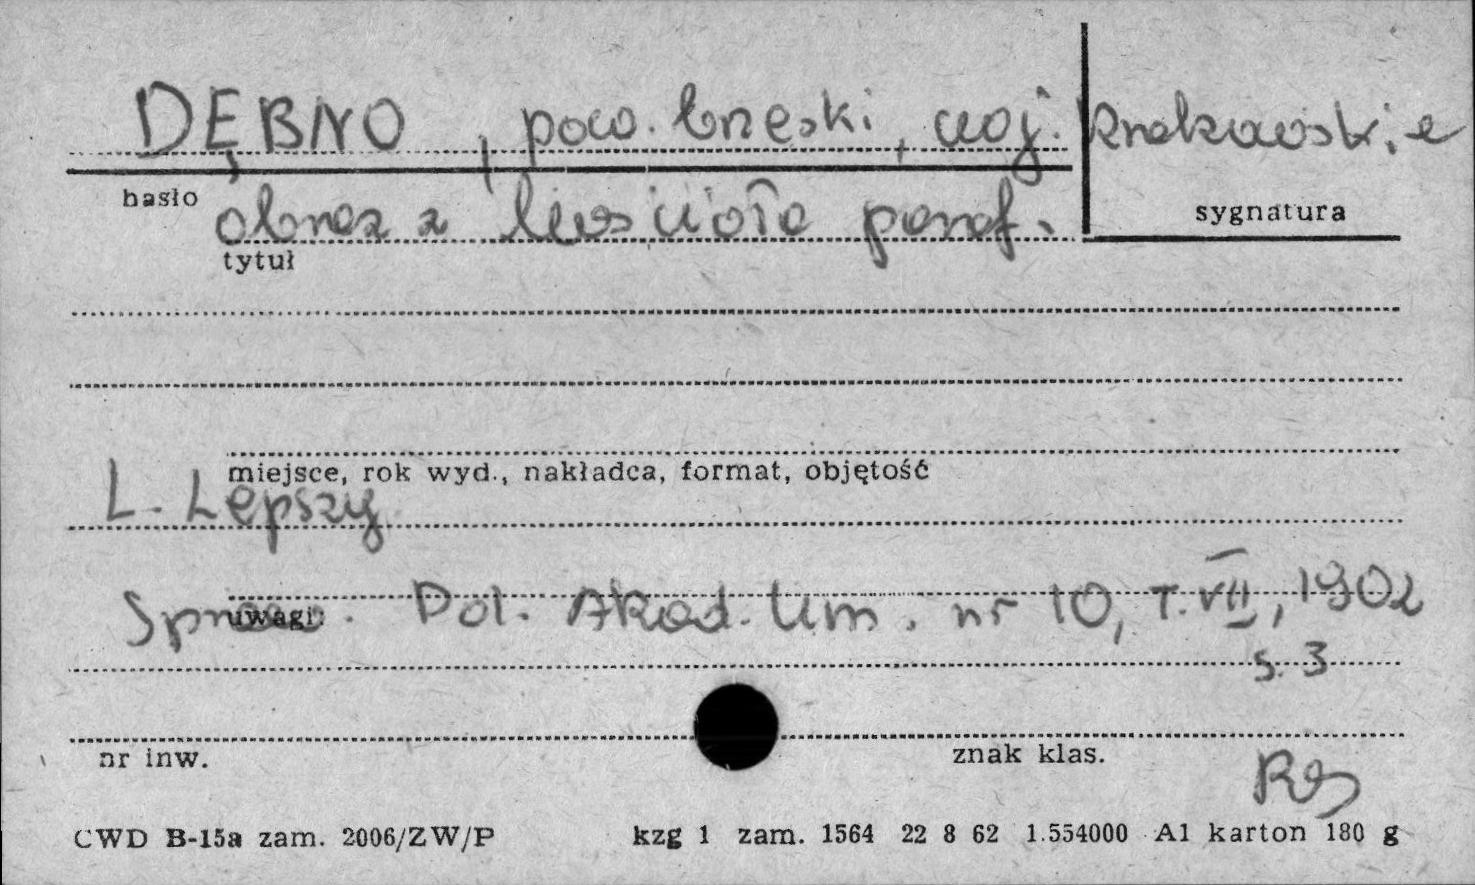 DĘBNO, pow. brzeski, woj. krakowskie
hasło
sygnatura
obraz z kościoła paraf.
tytuł
miejsce, rok wyd., nakładca, format, objętość
L. Lepszy
uwagi:
Spraw. Pol. Akad. Um. nr 10, T. VII, 1902
s. 3
nr inw.
znak klas.
CWD B-15a zam. 2006/ZW/P kzg 1 zam. 1564 22 8 62 1.554000 A1 karton 180 g